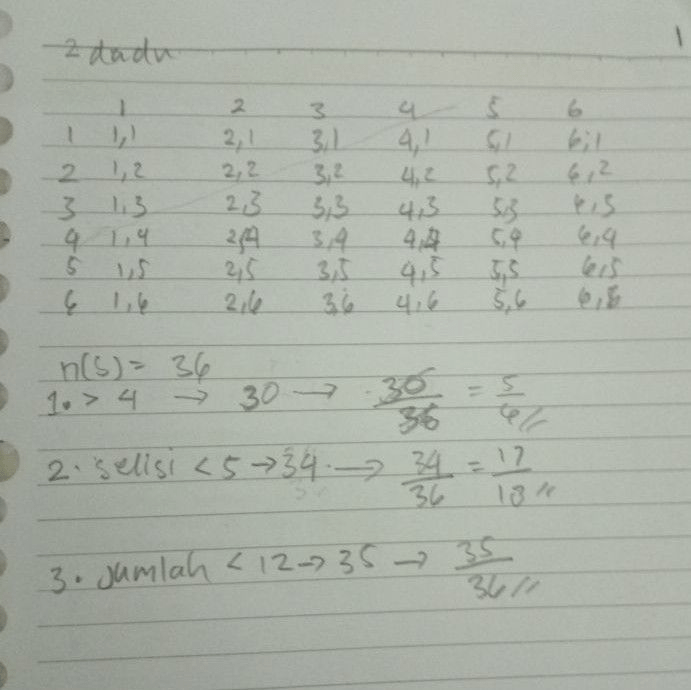 1
2 dadu
1 2 3 4 5 6
1 1,1 2,1 3,1 4,1 5,1 6,1
2 1,2 2,2 3,2 4,2 5,2 6,2
3 1,3 2,3 3,3 4,3 5,3 6,3
4 1,4 2,4 3,4 4,4 5,4 6,4
5 1,5 2,5 3,5 4,5 5,5 6,5
6 1,6 2,6 3,6 4,6 5,6 6,6
n(S) = 36
1. > 4 → 30 → 30/36 = 5/6 //
2. selisi < 5 → 34 → 34/36 = 17/18 //
3. jumlah < 12 → 35 → 35/36 //